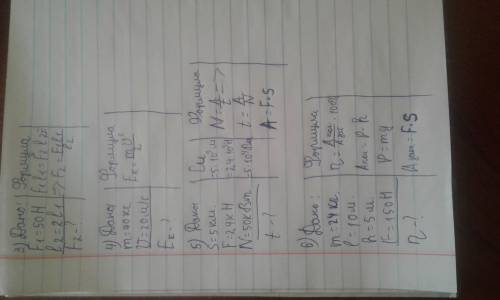 3) Дано: Формула
F₁=50Н F₁l₁=F₂l₂
l₂=2l₁ => F₂=F₁l₁/l₂
F₂-?
4) Дано Формула
m=70кг Eк=mυ²/2
υ=20м/с
Eк-?
5) Дано Си Формула
S=5км =5·10³м N=A/t =>
F=2,4кН =2,4·10³Н t=A/N
N=50кВт =5·10⁴Вт A=F·S
t-?
6) Дано: Формула
m=24кг
l=10м Aпол=P·h
h=5м P=mg
F=150Н Aзат=F·S
η-?